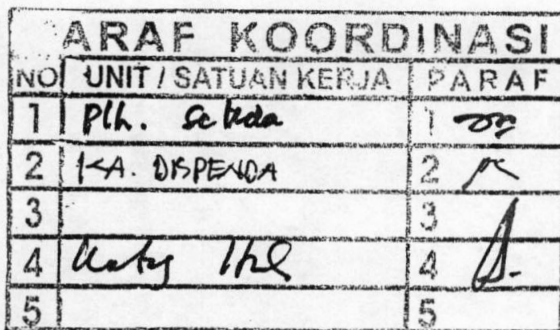 ARAF KOORDINASI
NO UNIT / SATUAN KERJA PARAF
1 Plh. Sekda 1
2 KA. DISPENDA 2
3 3
4 4
5 5